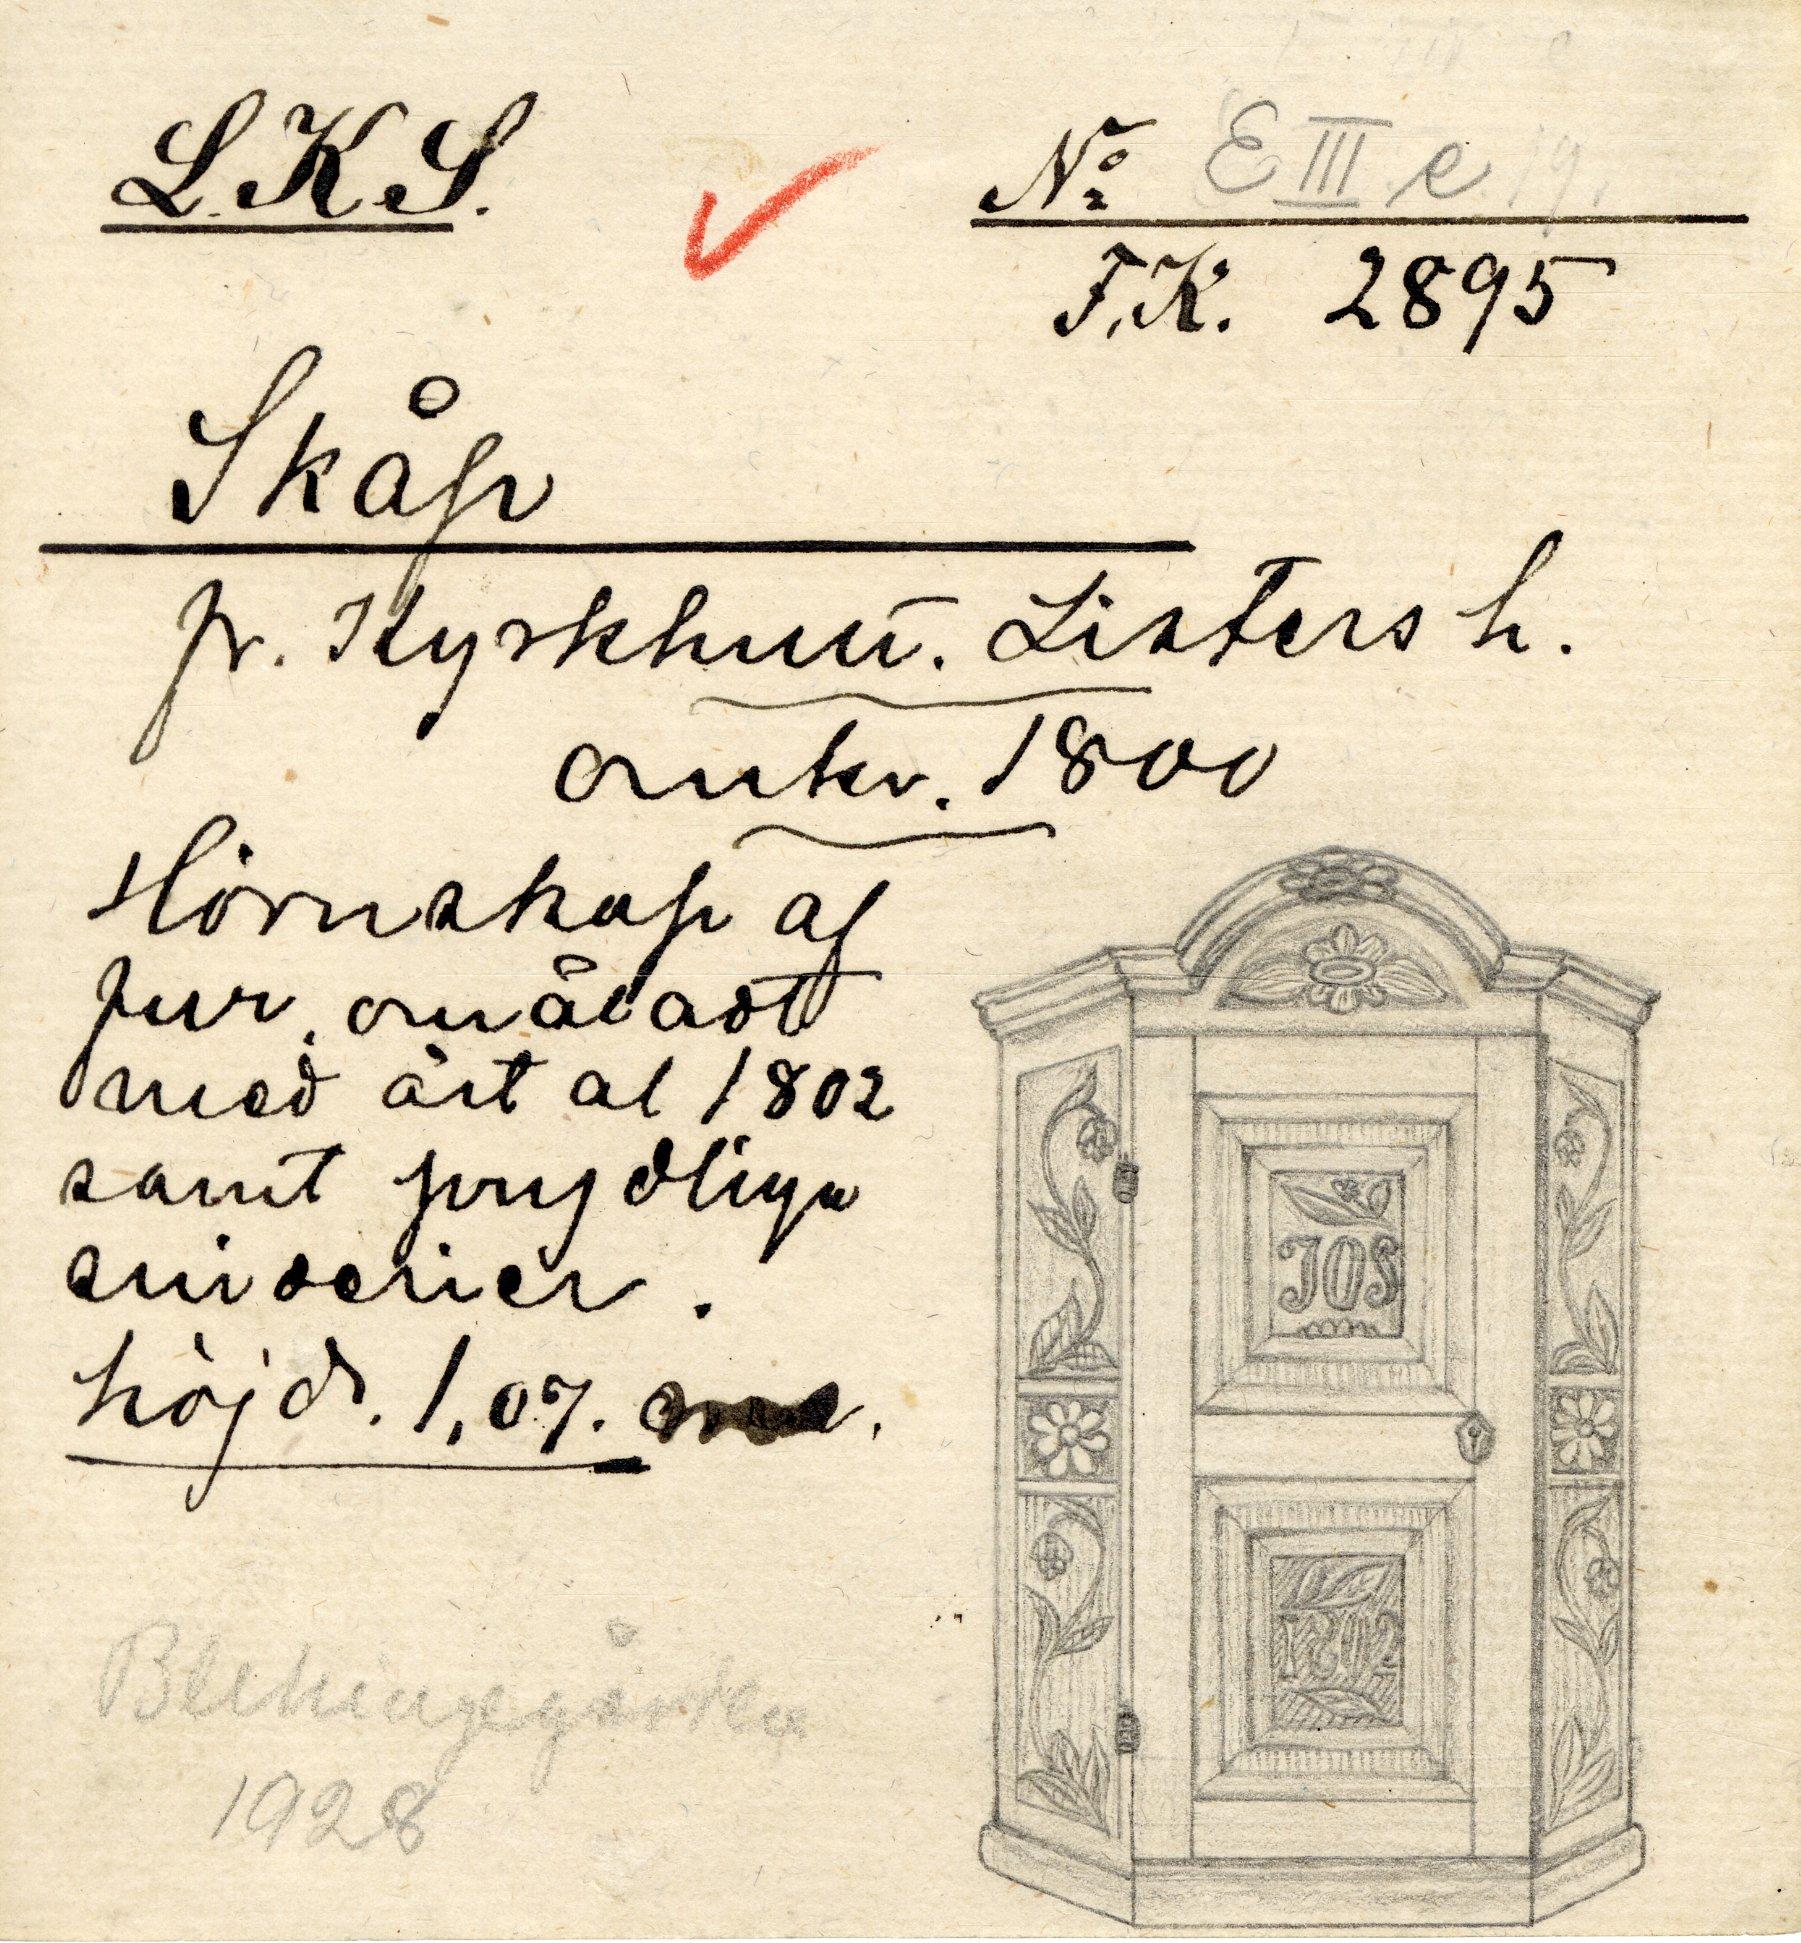 L.K.S.
No E III e 19.
F.K. 2895
Skåp
fr. Kyrkhult. Listers h.
omkr. 1800
Hörnskåp af
fur, omåladt
med årtal 1802
samt prydliga
sniderier.
höjd. 1,07.
JOS
1802
Blekingegården
1928